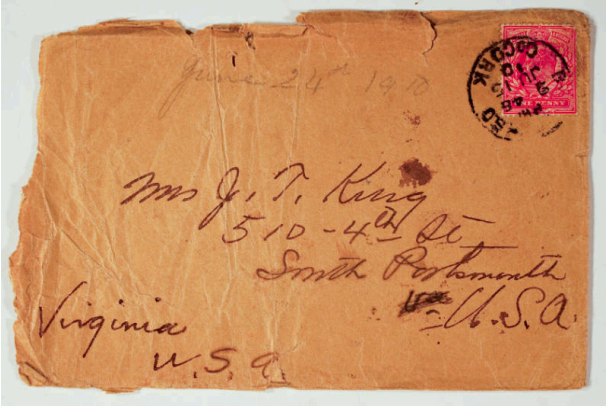 June 24th 1910
CO CORK
ONE PENNY
Mrs J. T. King
510-4th St
South Portsmouth
Va U.S.A.
Virginia
U.S.A